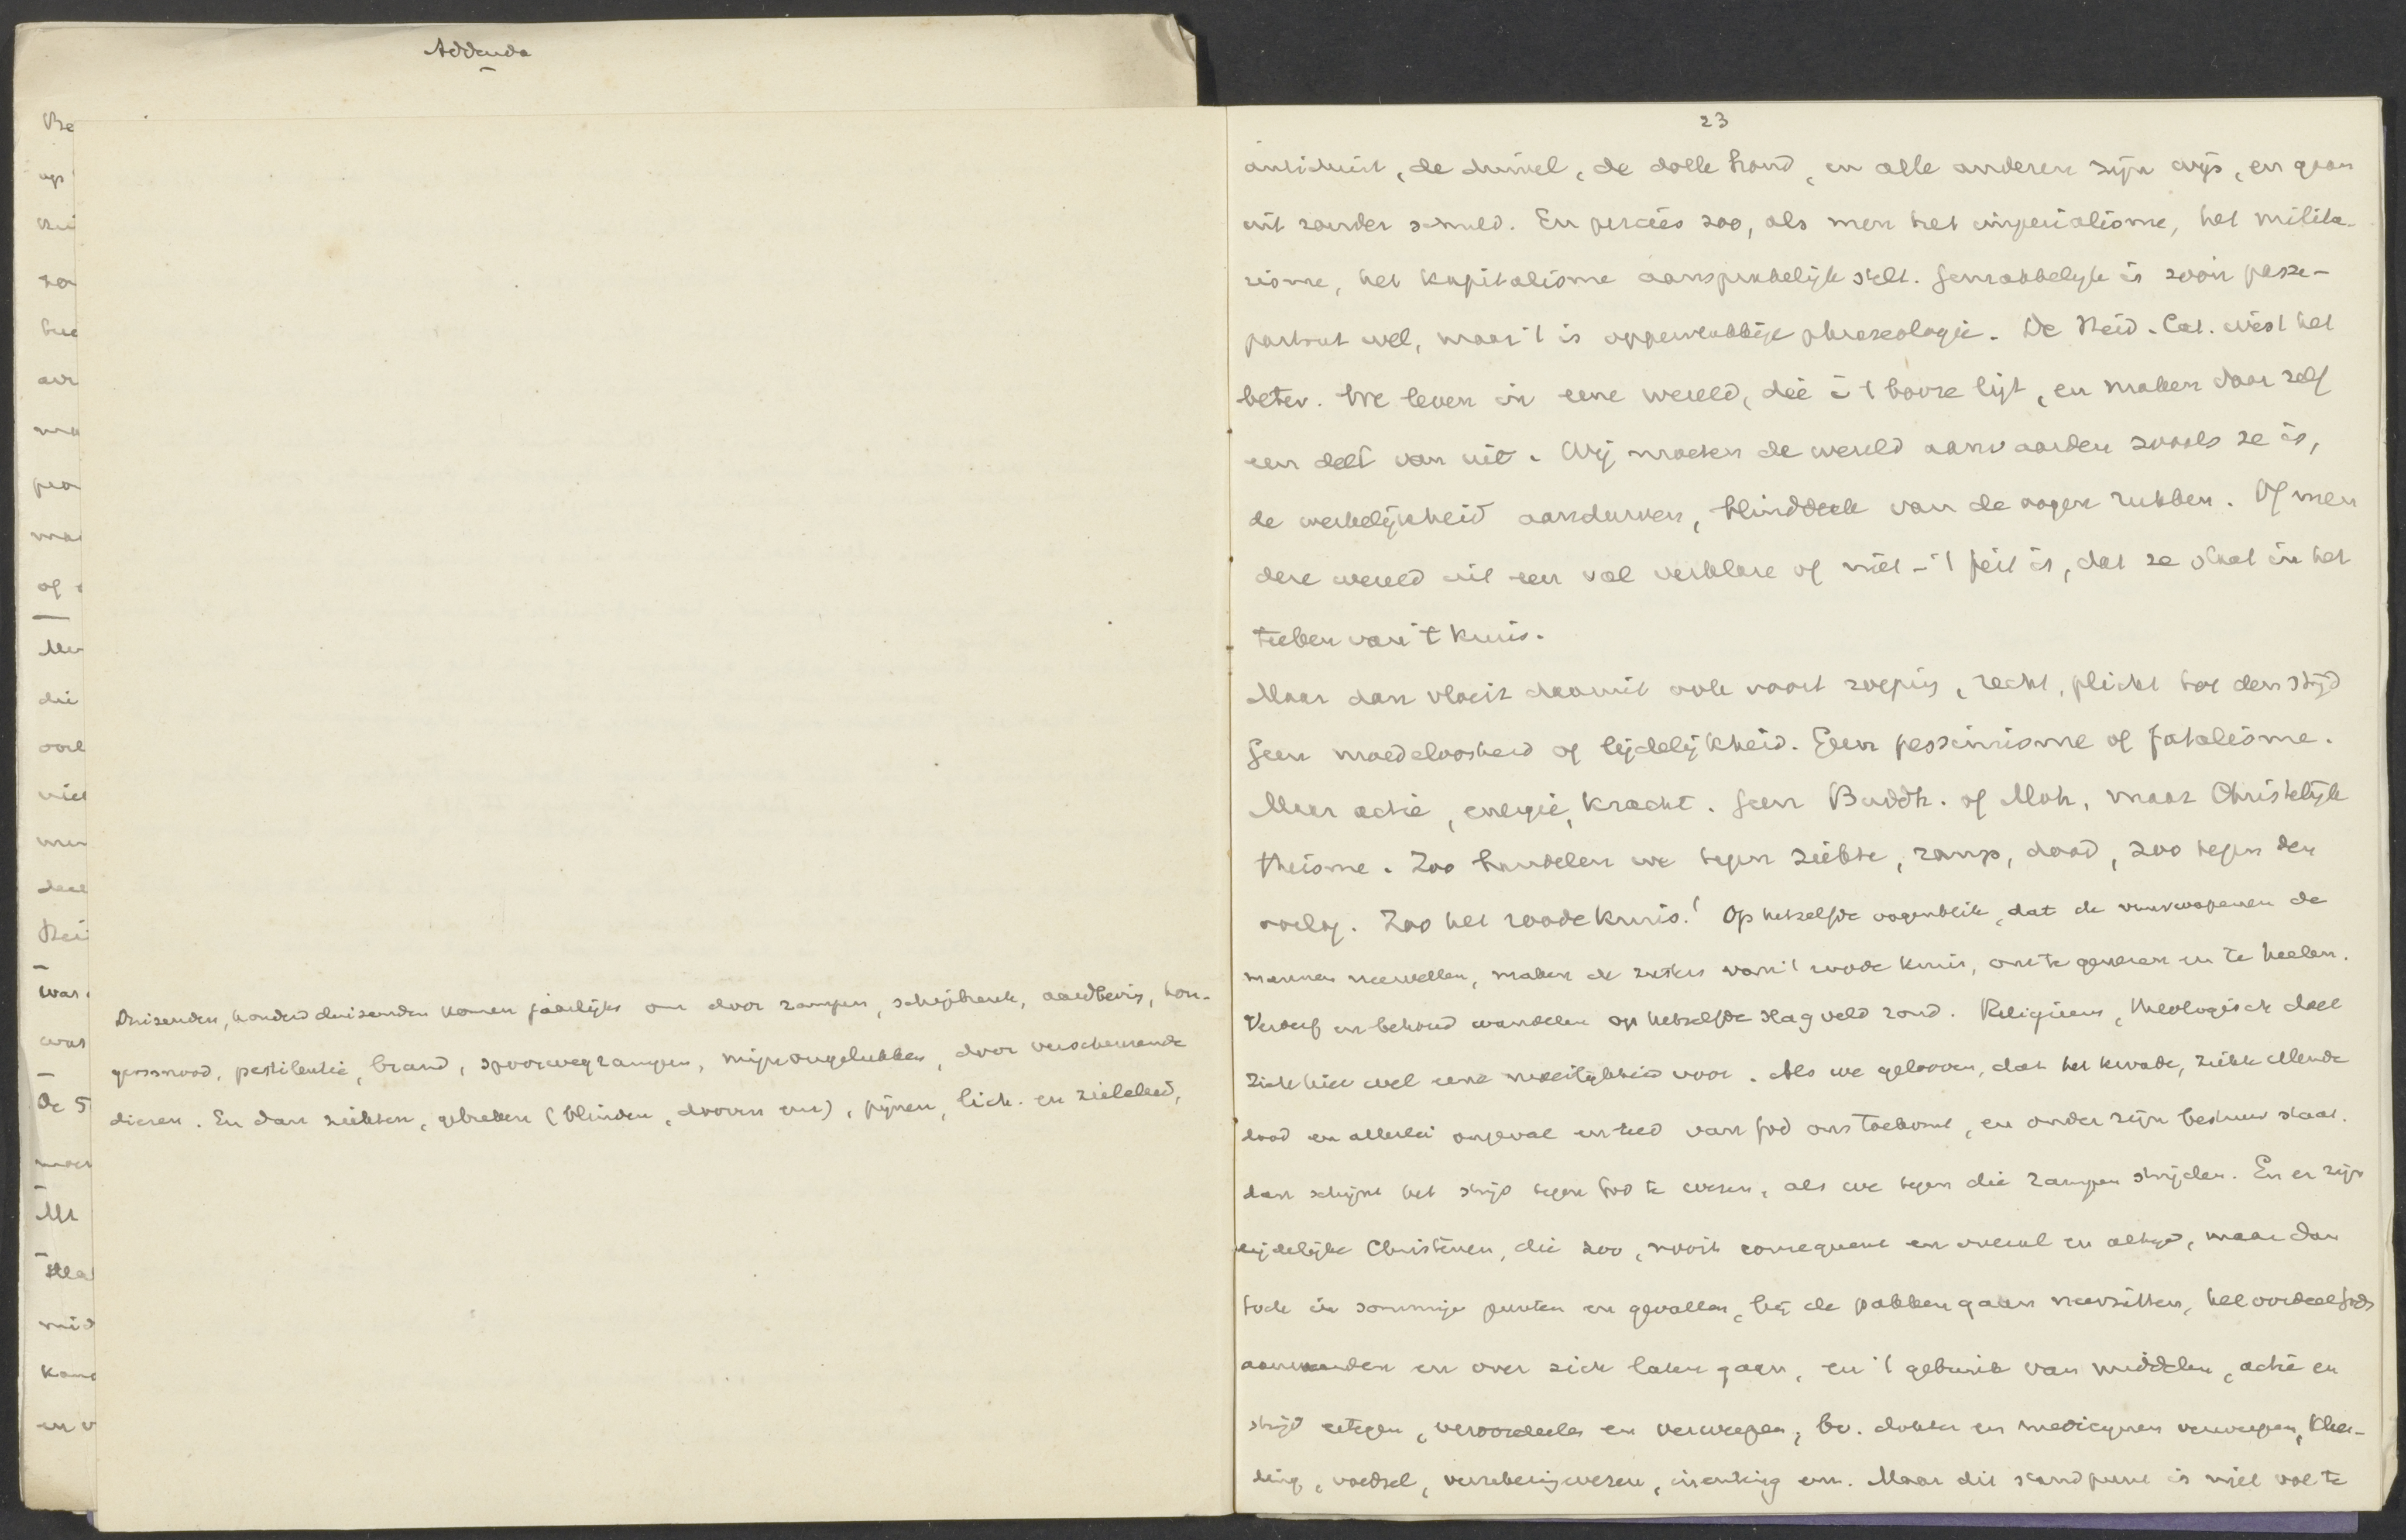 Addenda
Duizenden, honderdduizenden komen jaarlijks om door rampen, schipbreuk, aardbeving, hon-
gersnood, pestilentie, brand, spoorwegrampen, mijnongelukken, door verscheurende
dieren. En dan ziekten, gebreken (blinden, dooven enz), pijnen, lich. en zieleleed,
23
antichrist, de duivel, de dolle hond, en alle anderen zijn wijs, en gaan
uit zonder schuld. En precies zoo, als men het imperialisme, het milita-
risme, het kapitalisme aansprakelijk stelt. Gemakkelijk is zoo'n passe-
partout wel, maar 't is oppervlakkige phraseologie. De Heid. Cat. wist het
beter. We leven in eene wereld, die in 't booze ligt, en maken daar zelf
een deel van uit. Wij moeten de wereld aanvaarden zooals ze is,
de werkelijkheid aandurven, blinddoek van de oogen rukken. Of men
deze wereld uit een val verklare of niet - 't feit is, dat ze staat in het
teeken van 't kruis.
Maar dan vloeit daaruit ook voort roeping, recht, plicht tot den strijd
Geen moedeloosheid of lijdelijkheid. Geen pessimisme of fatalisme.
Maar actie, energie, kracht. Geen Buddh. of Moh. maar Christelijk
theisme. Zoo handelen we tegen ziekte, ramp, dood, zoo tegen den
oorlog. Zoo het roode kruis! Op hetzelfde oogenblik, dat de vuurwapenen de
mannen neervellen, maken de zusters van 't roode kruis, om te genezen en te heelen.
Verderf en behoud wandelen op hetzelfde slagveld rond. Religieus, theologisch doet
zich hier wel eene moeilijkheid voor. Als we gelooven, dat het kwade, ziekte ellende
dood en allerlei ongeval en leed van God ons toekomt, en onder zijn bestuur staat.
dan schijnt het strijd tegen God te wezen, als we tegen die rampen strijden. En er zijn
lijdelijke Christenen, die zoo, nooit consequent en overal en altijd, maar dan
toch in sommige punten en gevallen, bij de pakken gaan neerzitten, het oordeel Gods
aanvaarden en over zich laten gaan, en 't gebruik van middelen, actie en
strijd ertegen, veroordeelen en verwerpen, bv. dokter en medicijnen verwerpen, klee-
ding, voedsel, verzekeringwezen, inenting enz. Maar dit standpunt is niet vol te